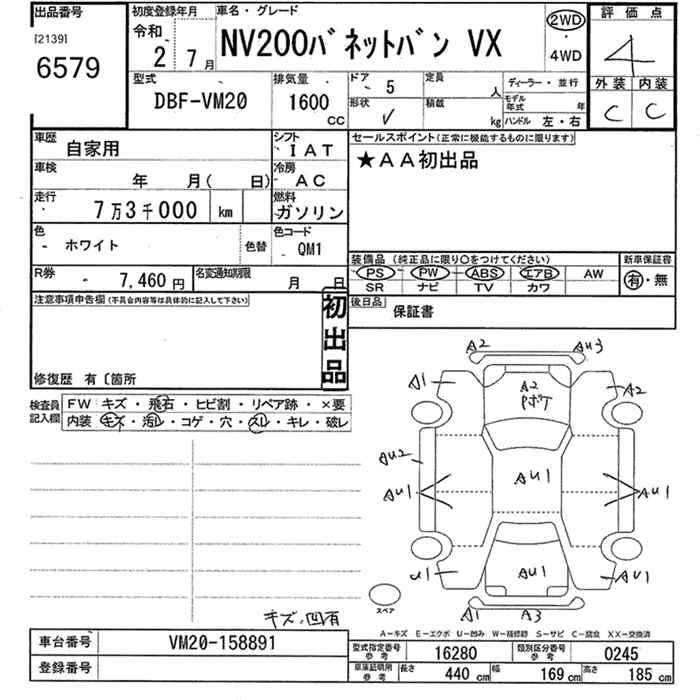 出品番号
[2139]
6579
初度登録年月
令和
2 7月
車名・グレード
NV200バネットバン VX
2WD
・
4WD
評価点
4
外装 内装
C C
型式
DBF-VM20
排気量
1600
CC
ドア 5
定員 人
形状 レ
積載 kg
ディーラー・並行
モデル年式 年
ハンドル 左・右
車歴 自家用
シフト IAT
車検 年 月( 日)
冷房 AC
走行 7万3千000 km
燃料 ガソリン
色 ホワイト
色替
色コード QM1
R券 7,460円
名変通知期限 月 日
セールスポイント(正常に機能するものに限ります)
★AA初出品
装備品 (純正品に限り〇をつけてください)
新車保証書
PS PW ABS エアB AW
SR ナビ TV カワ
有・無
後日品 保証書
注意事項申告欄(不具合内容等は具体的に記入して下さい)
初出品
修復歴 有〔箇所
検査員記入欄
FW キズ・飛石・ヒビ割・リペア跡・×要
内装 キズ・汚レ・コゲ・穴・スレ・キレ・破レ
A2 AU3
A1 A2 A2
Pボケ
AU2
AU1 AU1 AU1
U1 AU1 AU1
スペア
A1 A3
キズ、凹有
A-キズ E-エクボ U-凹み W-補修跡 S-サビ C-腐食 XX-交換済
車台番号 VM20-158891
登録番号
型式指定番号 参考 16280
類別区分番号 参考 0245
車庫証明用 参考
長さ 440 cm 幅 169 cm 高さ 185 cm